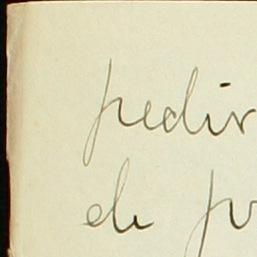 pedir
de